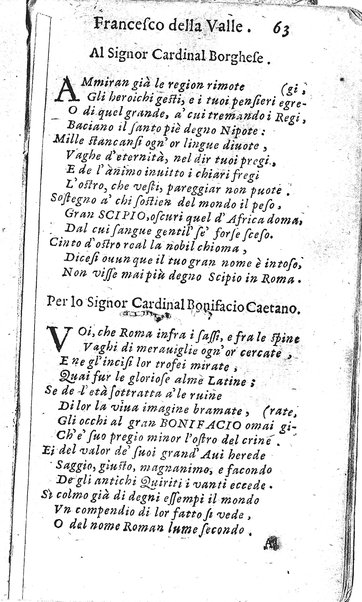 Francesco della Valle. 63
Al Signor Cardinal Borghese.
AMmiran già le region rimote (gi,
Gli heroichi gesti, e i tuoi pensieri egre-
O di quel grande, a' cui tremando i Regi,
Baciano il santo piè degno Nipote:
Mille stancansi ogn'or lingue diuote,
Vaghe d'eternità, nel dir tuoi pregi,
E de l'animo inuitto i chiari fregi
L'ostro, che vesti, pareggiar non puote.
Sostegno a' chi sostien del mondo il peso,
Gran SCIPIO, oscuri quel d'Africa doma,
Dal cui sangue gentil se' forse sceso.
Cinto d'ostro real la nobil chioma,
Dicesi ouunque il tuo gran nome è inteso,
Non visse mai più degno Scipio in Roma.
Per lo Signor Cardinal Bonifacio Caetano.
VOi, che Roma infra i sassi, e fra le spine
Vaghi di merauiglie ogn'or cercate,
E ne gl'incisi lor trofei mirate,
Quai fur le gloriose alme Latine;
Se de l'età sottratta a'le ruine
Di lor la viua imagine bramate, (rate,
Gli occhi al gran BONIFACIO omai gi-
Ch'e' suo pregio minor l'ostro del crine.
Ei del valor de' suoi grand'Aui herede
Saggio, giusto, magnanimo, e facondo
De gli antichi Quiriti i vanti eccede.
Sì colmo già di degni essempi il mondo
Vn compendio di lor fatto si vede,
O del nome Roman lume secondo.